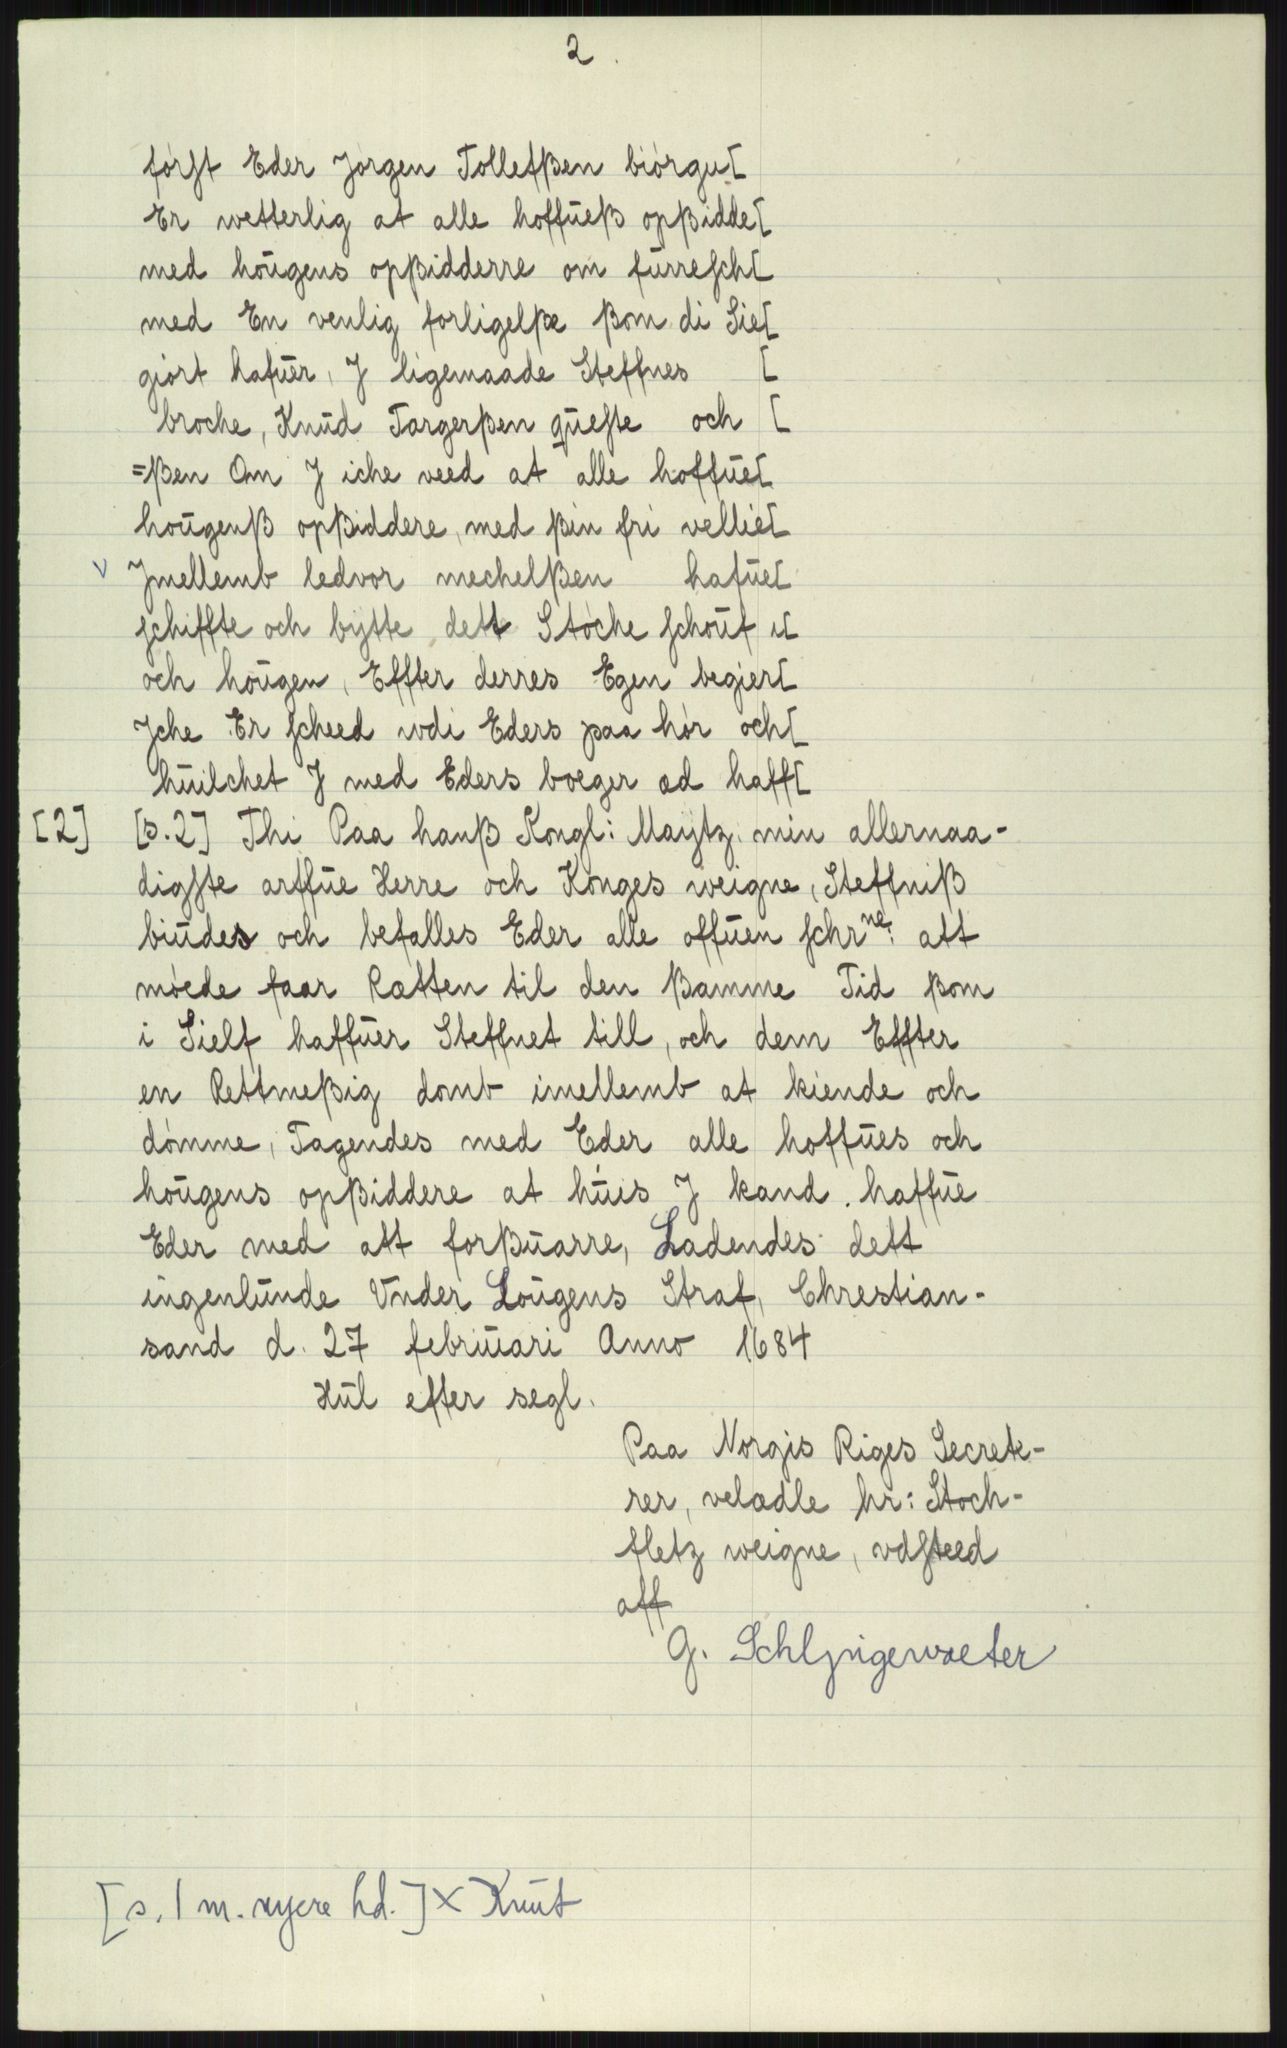 2.
først Eder Jørgen Tollefßen biørgu[
Er wetterlig at alle hoffueß opßidde[
med hougens opßidderre om furresch[
med En venlig forligelße ßom di Sie[
giørt hafuer, J ligemaade Steffnes [
broche, Knud Targerßen queste och [
=ßen Om J iche veed at alle hoffue[
hougenß opßiddere, med ßin fri vellie[
v Jmellemb ledvor mechelßen hafue[
schiffte och bytte dett Støche schouf i[
och hougen, Effter derres Egen begier[
Jche Er scheed udi Eders paa hør och[
huilchet J med Eders bøeger æd haff[
[2] [s.2] Thi Paa hanß Kongl: Maytz min allernaa-
digste arffue Herre och Konges weigne, Steffniß
biudes och befalles Eder alle offuen schrne: att
møede faar Rætten til den ßamme Tid ßom
i Sielf haffuer Steffnet till, och dem Effter
en Rettmeßig domb imellemb at kiende och
dømme, Tagendes med Eder alle hoffues och
hougens opßiddere at huis J kand haffue
Eder med att forßuarre, Ladendes dett
ingenlunde Vnder Lougens Straf, Chrestian-
sand d. 27 februari Anno 1684
Hul efter segl.
Paa Norgis Riges Secrete-
rer, velædle hr: Stoch-
fletz weigne, vdsteed
aff
G. Schlyngewæter
[s. 1 m. nyere hd.] x Knut